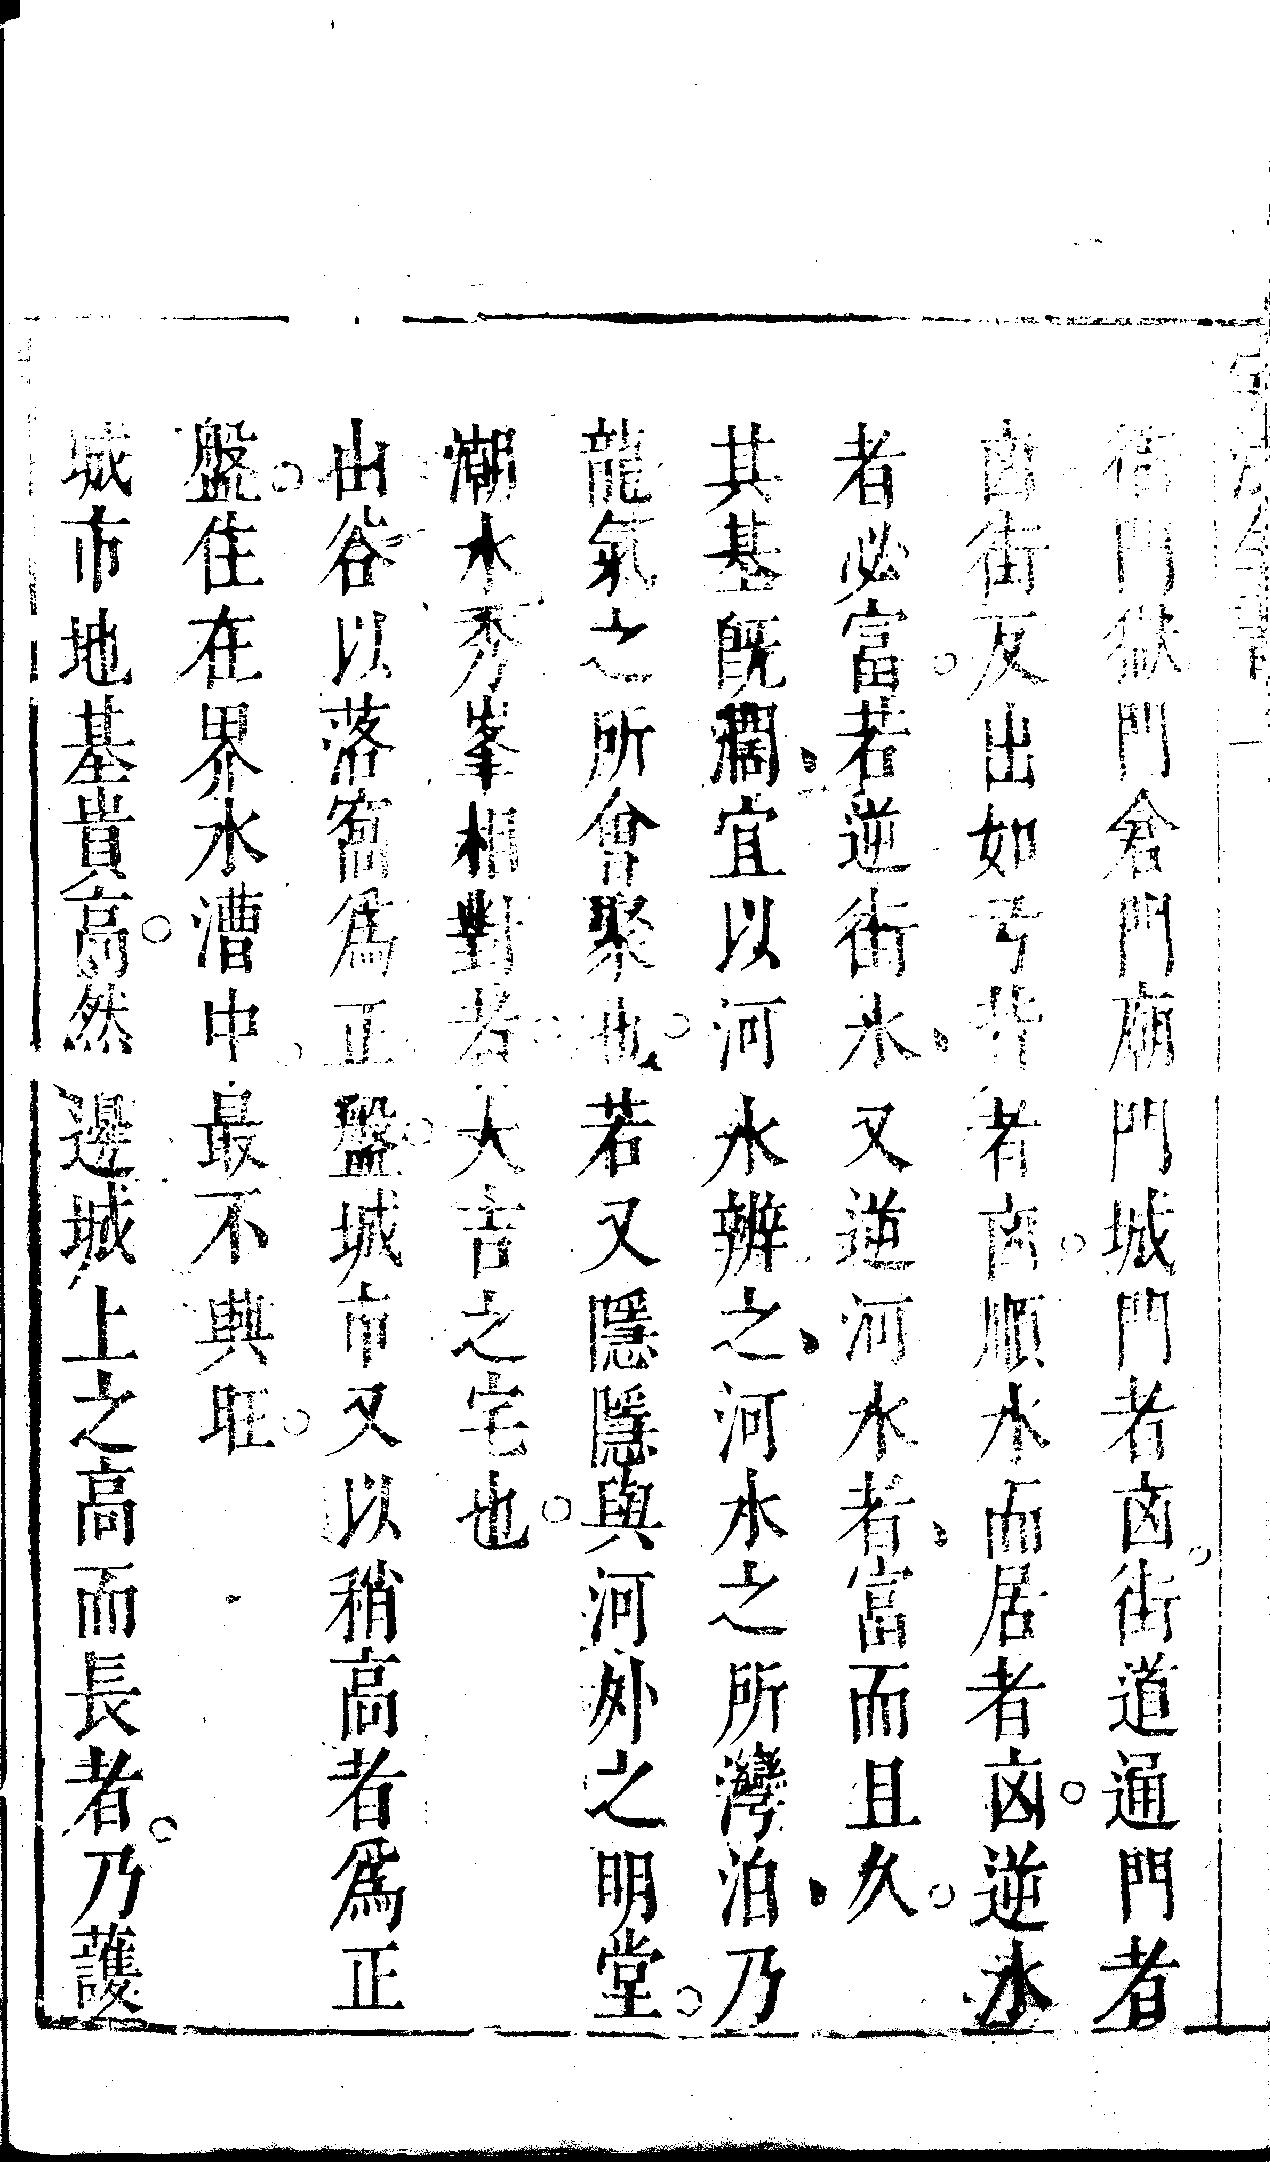 衙門獄門倉門廟門城門者凶街道通門者
凶街反出如弓背者凶順水而居者凶逆水
者必富若逆街水又逆河水者富而且久
其基既濶宜以河水辨之河水之所灣泊乃
龍氣之所會聚也若又隱隱與河外之明堂
潮水秀峯相對者大吉之宅也
山谷以落窩爲正盤城市又以稍高者爲正
盤住在界水漕中最不興旺
城市地基貴高然邊城上之高而長者乃護